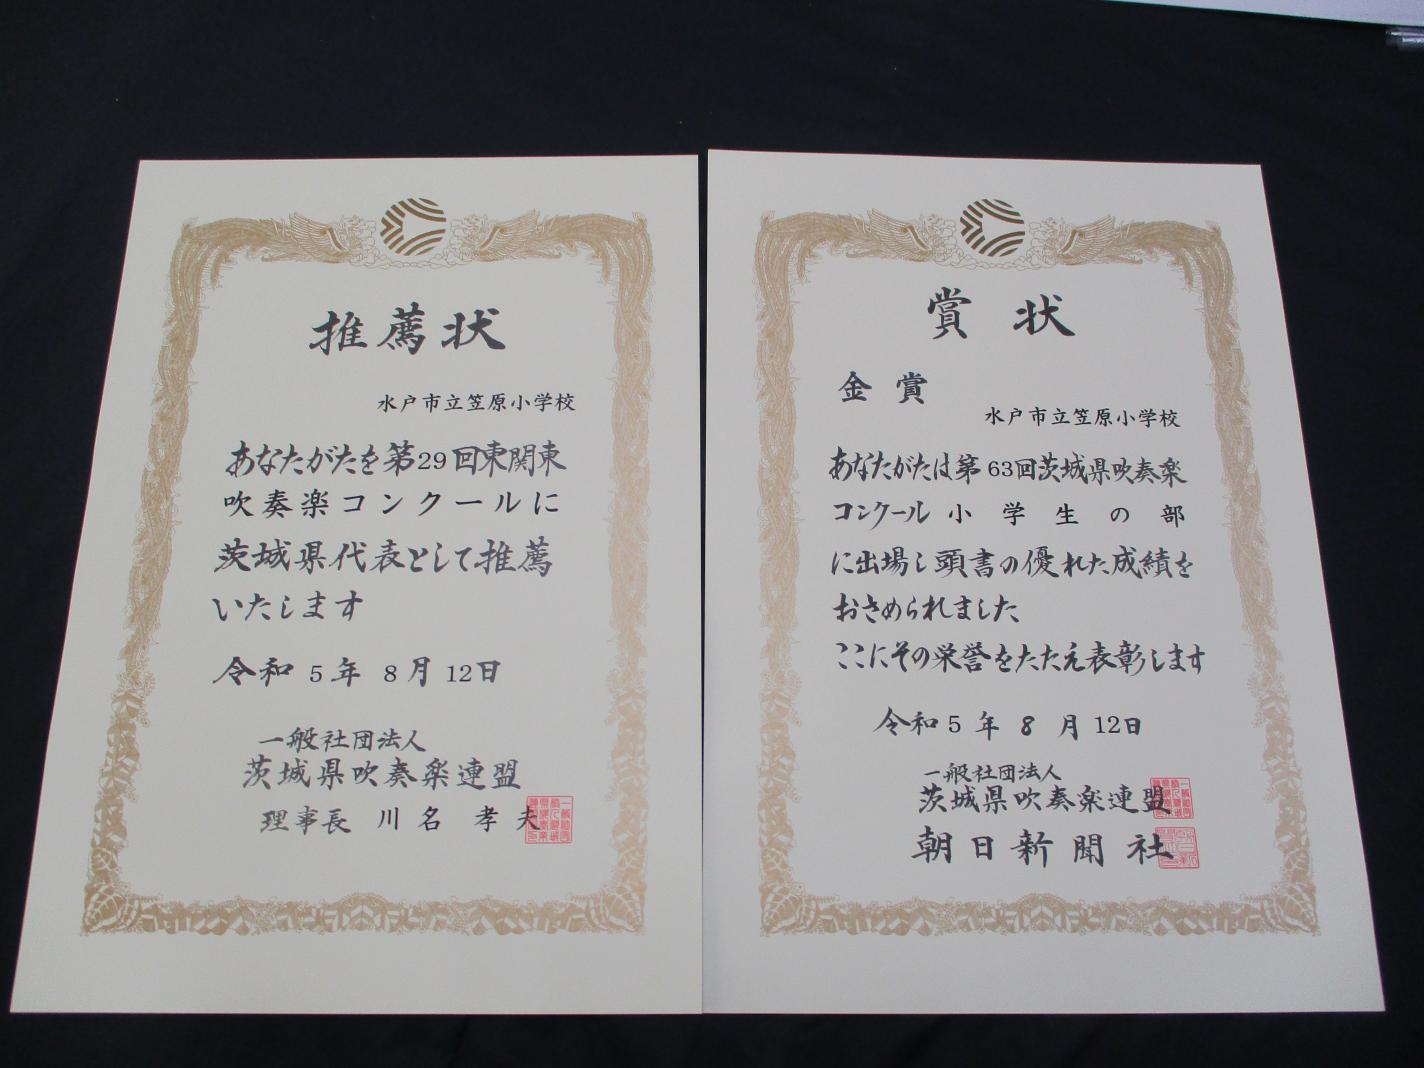 推薦状
水戸市立笠原小学校
あなたがたを第29回東関東
吹奏楽コンクールに
茨城県代表として推薦
いたします
令和5年8月12日
一般社団法人
茨城県吹奏楽連盟
理事長 川名孝夫
賞状
金賞
水戸市立笠原小学校
あなたがたは第63回茨城県吹奏楽
コンクール小学生の部
に出場し頭書の優れた成績を
おさめられました
ここにその栄誉をたたえ表彰します
令和5年8月12日
一般社団法人
茨城県吹奏楽連盟
朝日新聞社